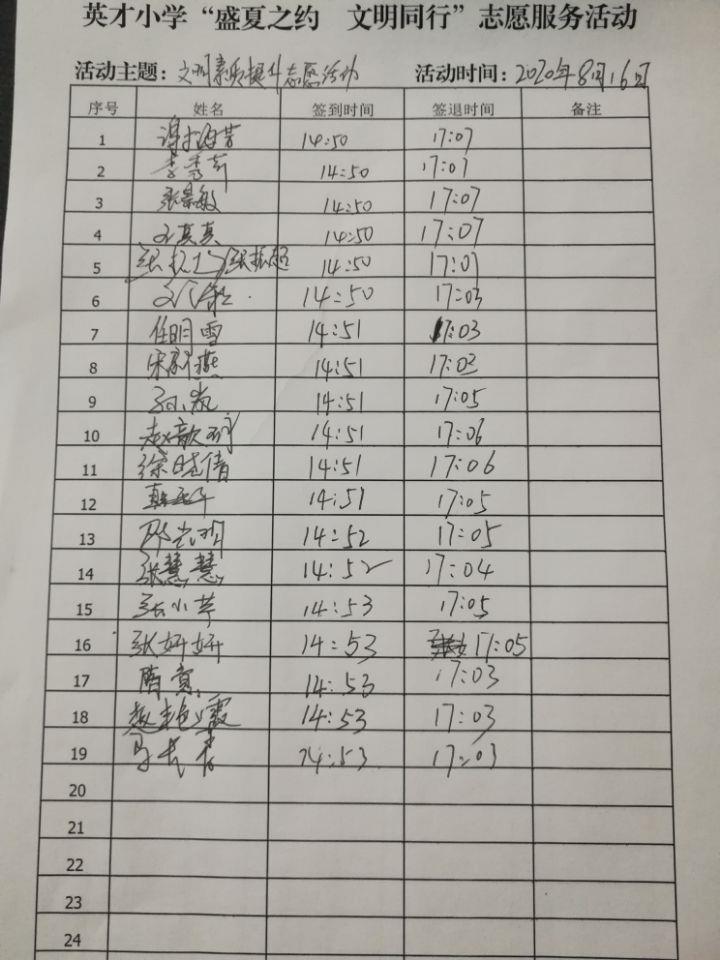 英才小学“盛夏之约 文明同行”志愿服务活动
活动主题：文明素质提升志愿活动 活动时间：2020年8月16日
序号 姓名 签到时间 签退时间 备注
1 14:50 17:07
2 李秀 14:50 17:07
3 张景敏 14:50 17:07
4 王真真 14:50 17:07
5 张振超 14:50 17:07
6 14:50 17:03
7 任明雪 14:51 17:03
8 宋 燕 14:51 17:03
9 孙岚 14:51 17:05
10 赵歆 14:51 17:06
11 徐晓倩 14:51 17:06
12 14:51 17:05
13 14:52 17:05
14 张慧慧 14:52 17:04
15 张小苹 14:53 17:05
16 张妍妍 14:53 17:05
17 隋 14:53 17:03
18 赵艳霞 14:53 17:03
19 马长 14:53 17:03
20
21
22
23
24